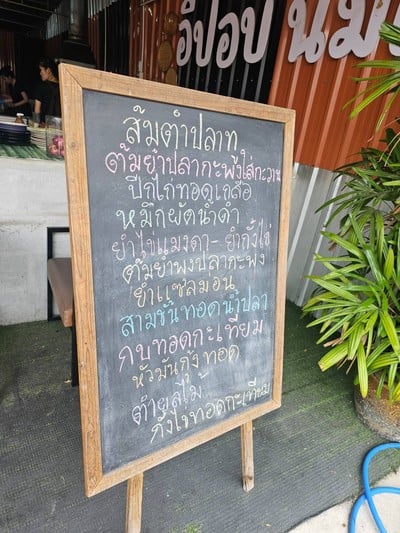 อีปอบ นัมเ
ส้มตำปลาท
ต้มยำปลากะพงใส่กะวาน
ปีกไก่ทอดเกลือ
หมึกผัดน้ำดำ
ยำไข่แมงดา - ยำกุ้งไข่
ต้มยำพุงปลากะพง
ยำแซลมอน
สามชั้นทอดน้ำปลา
กบทอดกะเทียม
หัวมันกุ้งทอด
ตำผลไม้
กุ้งไข่ทอดกะเทียม